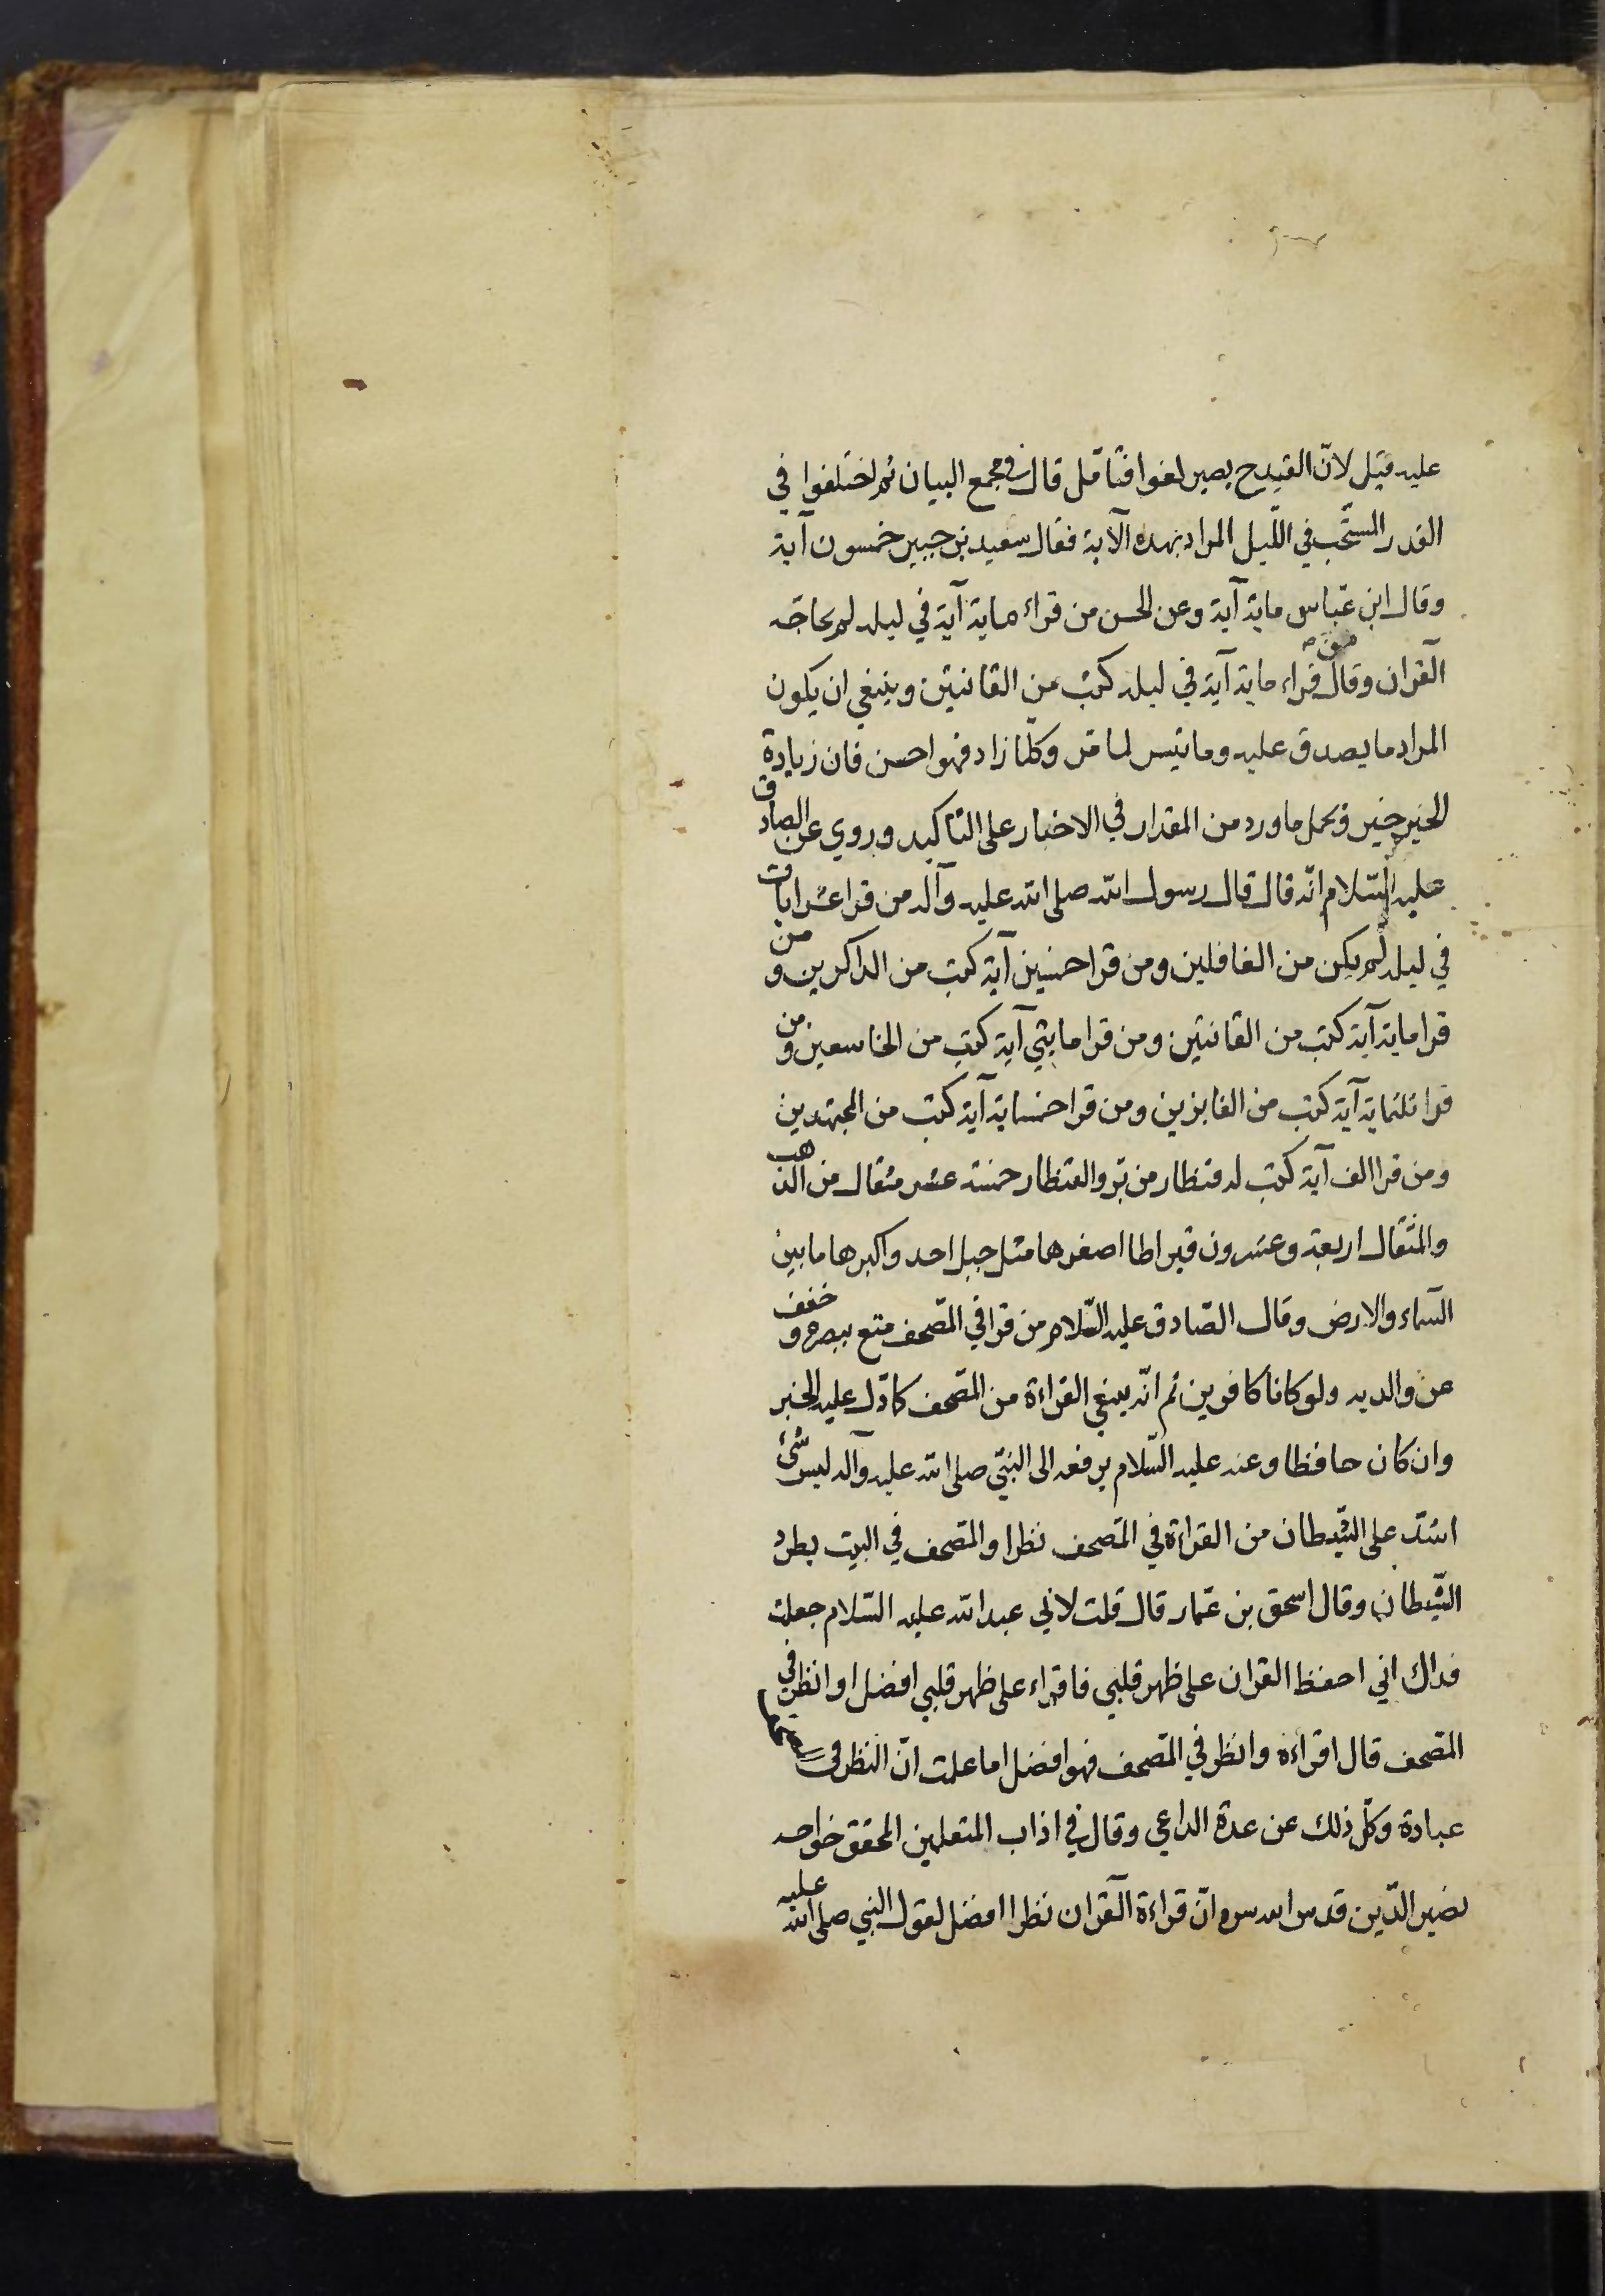 عليه قيل لانّ القيد ح يصير لغوا فتامّل قال في مجمع البيان ثم اختلفوا في
القدر المستحب في اللّيل المراد بهذه الآية فقال سعيد بن جبير خمسون آية
وقال ابن عبّاس ماية آية وعن الحسن من قراء ماية آية في ليله لم يحاجه
القران وقال من قراء ماية آية في ليله كتب من القانتين وينبغي ان يكون
المراد ما يصدق عليه وما تيسر لما مر وكلّما زاد فهو احسن فان زيادة
الخير خير ويحمل ما ورد من المقدار في الاخبار على التاكيد وروي عن الصادق
عليه السّلام انّه قال قال رسول الله صلى الله عليه وآله من قرا عشر ايات
في ليله لم يكن من الغافلين ومن قرا خمسين آية كتب من الذاكرين ومن
قرا ماية آية كتب من القانتين ومن قرا مايتي آية كتب من الخاشعين ومن
قرا ثلثماية آية كتب من الفايزين ومن قرا خمسماية آية كتب من المجتهدين
ومن قرا الف آية كتب له قنطار من تبر والقنطار خمسة عشر مثقال من الذهب
والمثقال اربعة وعشرون قيراطا اصغرها مثل جبل احد واكبرها ما بين
السّماء والارض وقال الصّادق عليه السّلام من قرا في المصّحف متع ببصره وخفف
عن والديه ولو كانا كافرين ثم انّه ينبغي القراءة من المصّحف كما دّل عليه الخبر
وان كان حافظا وعنه عليه السّلام يرفعه الى النبيّ صلى الله عليه وآله ليس شئ
اشدّ على الشّيطان من القراءة في المصّحف نظرا والمصّحف في البيت يطرد
الشّيطان وقال اسحق بن عمّار قال قلت لابي عبد الله عليه السّلام جعلت
فداك اني احفظ القران على ظهر قلبي فاقراء على ظهر قلبي افضل او انظر في
المصّحف قال اقراءه وانظر في المصّحف فهو افضل اما علمت انّ النظر في المصحف
عبادة وكلّ ذلك عن عدة الداعي وقال في اداب المتعلمين المحقق خواجه
نصير الدّين قدس الله سره انّ قراءة القران نظرا افضل لقول النبي صلى الله عليه